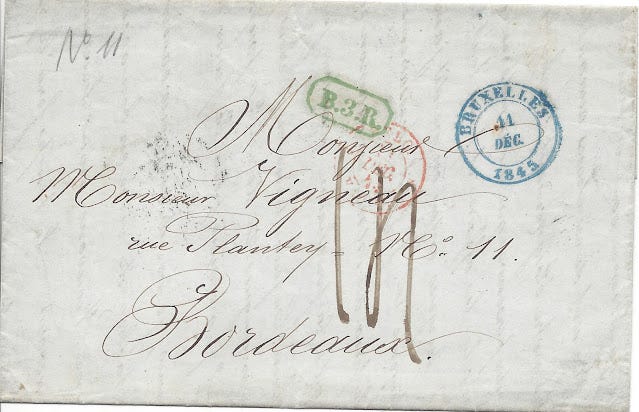 No 11
B.3.R.
BRUXELLES
11
DÉC.
1845
Monsieur
Monsieur Vigneau
rue Plantey - No. 11.
Bordeaux.